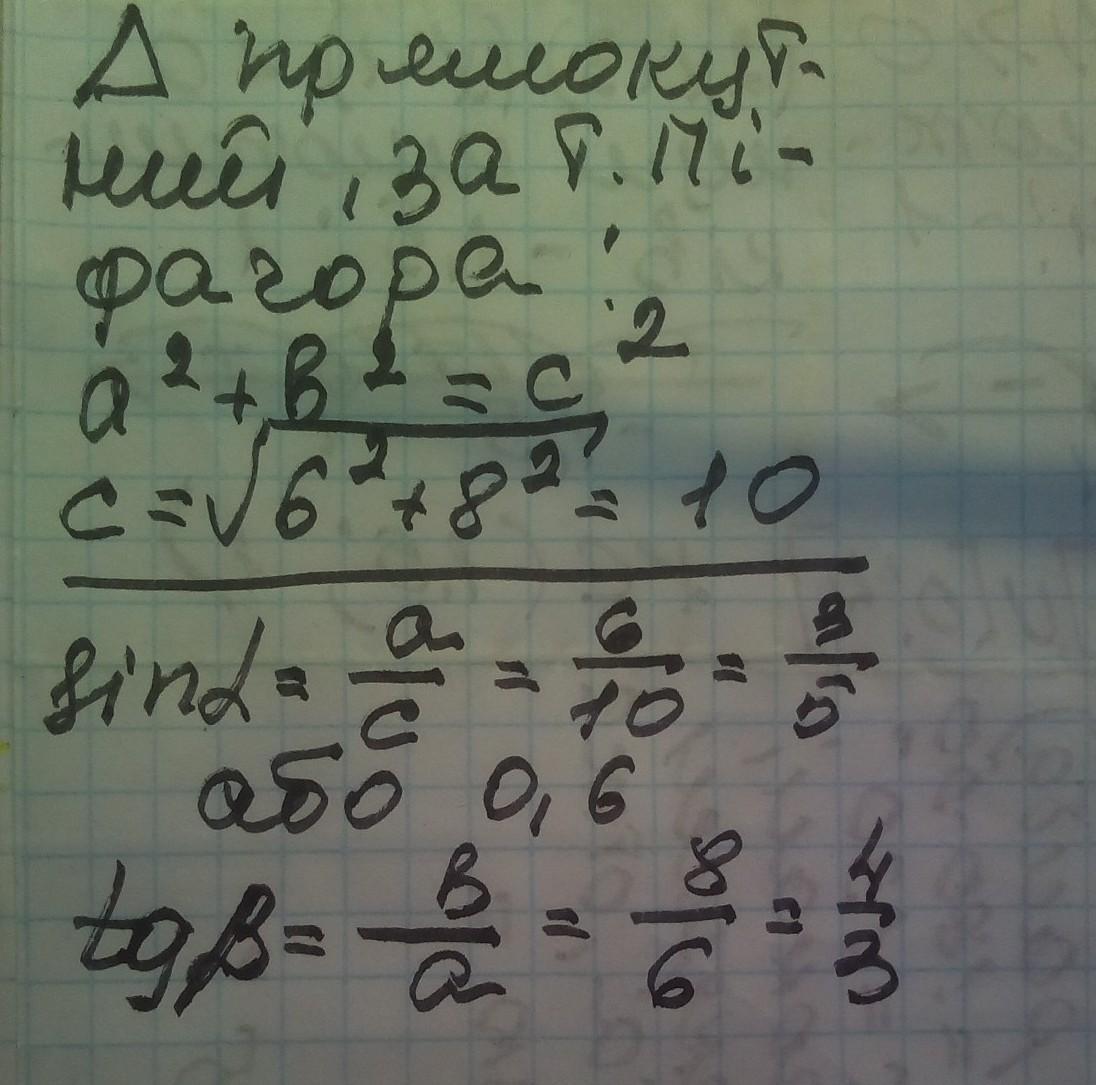 Δ прямокут-
ний, за т. Пі-
фагора:
a² + в² = c²
c = √6² + 8² = 10
sin α = a/c = 6/10 = 3/5
або 0,6
tg β = в/a = 8/6 = 4/3